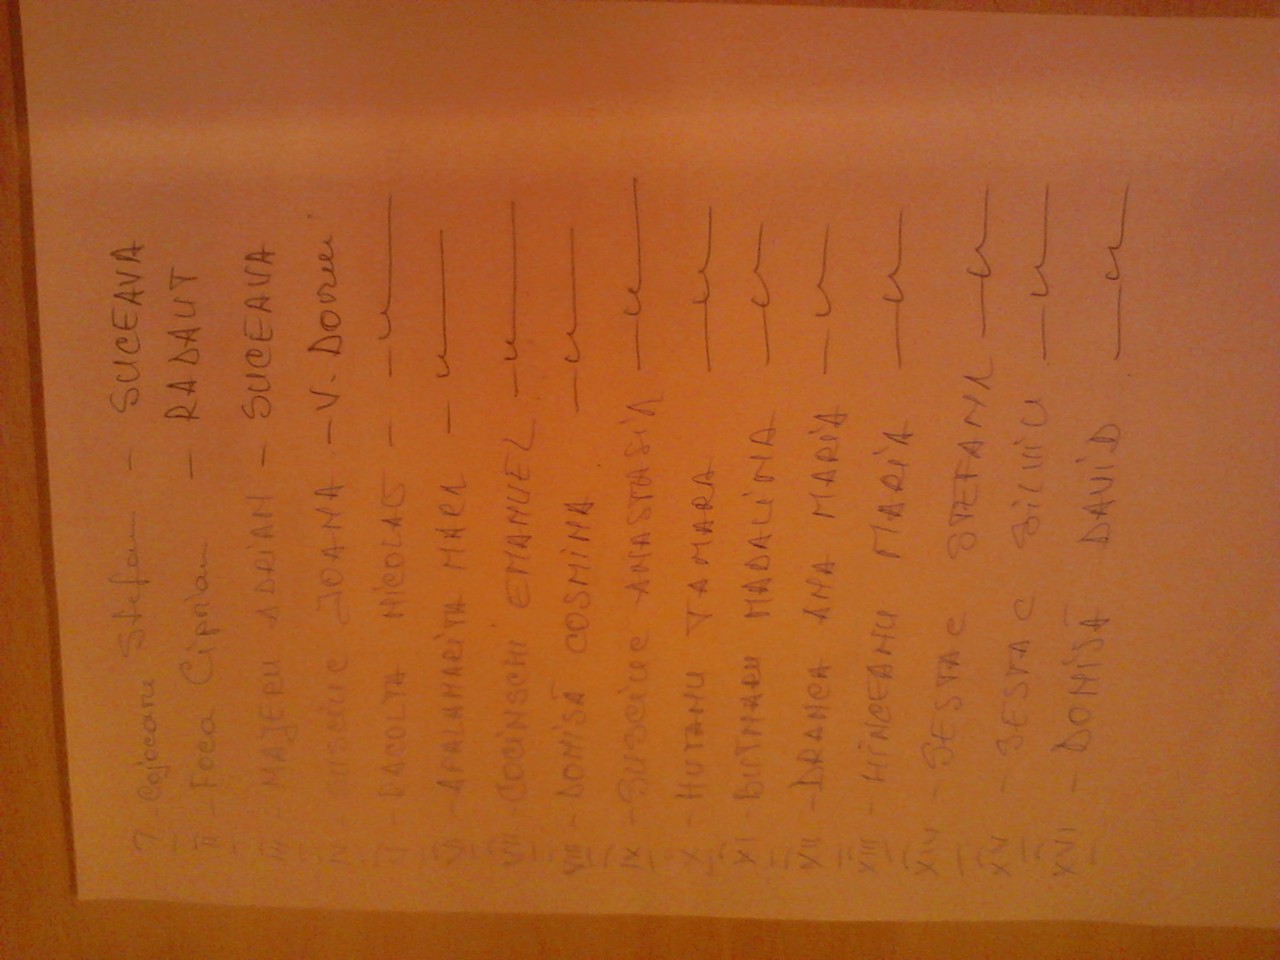 I - Cojocaru Stefan - SUCEAVA
II - Foca Ciprian - RADAUT
III - MAJERU ADRIAN - SUCEAVA
IV - IOANA - V. Dornei
V - DACOLTA NICOLAS - -u-
VI - APALAMARITA MARA - u-
VII - COCINSCHI EMANUEL -u-
VIII - DOMISĂ COSMINA -u-
IX - ANASTASIA -u-
X - HUTANU TAMARA -u-
XI - BUTNARU MADALINA -u-
XII - DRANCA ANA MARIA -u-
XIII - HINCEANU MARIA -u-
XIV - SESTAC STEFANA -u-
XV - SESTAC SILVIU -u-
XVI - DOMISĂ DAVID -u-